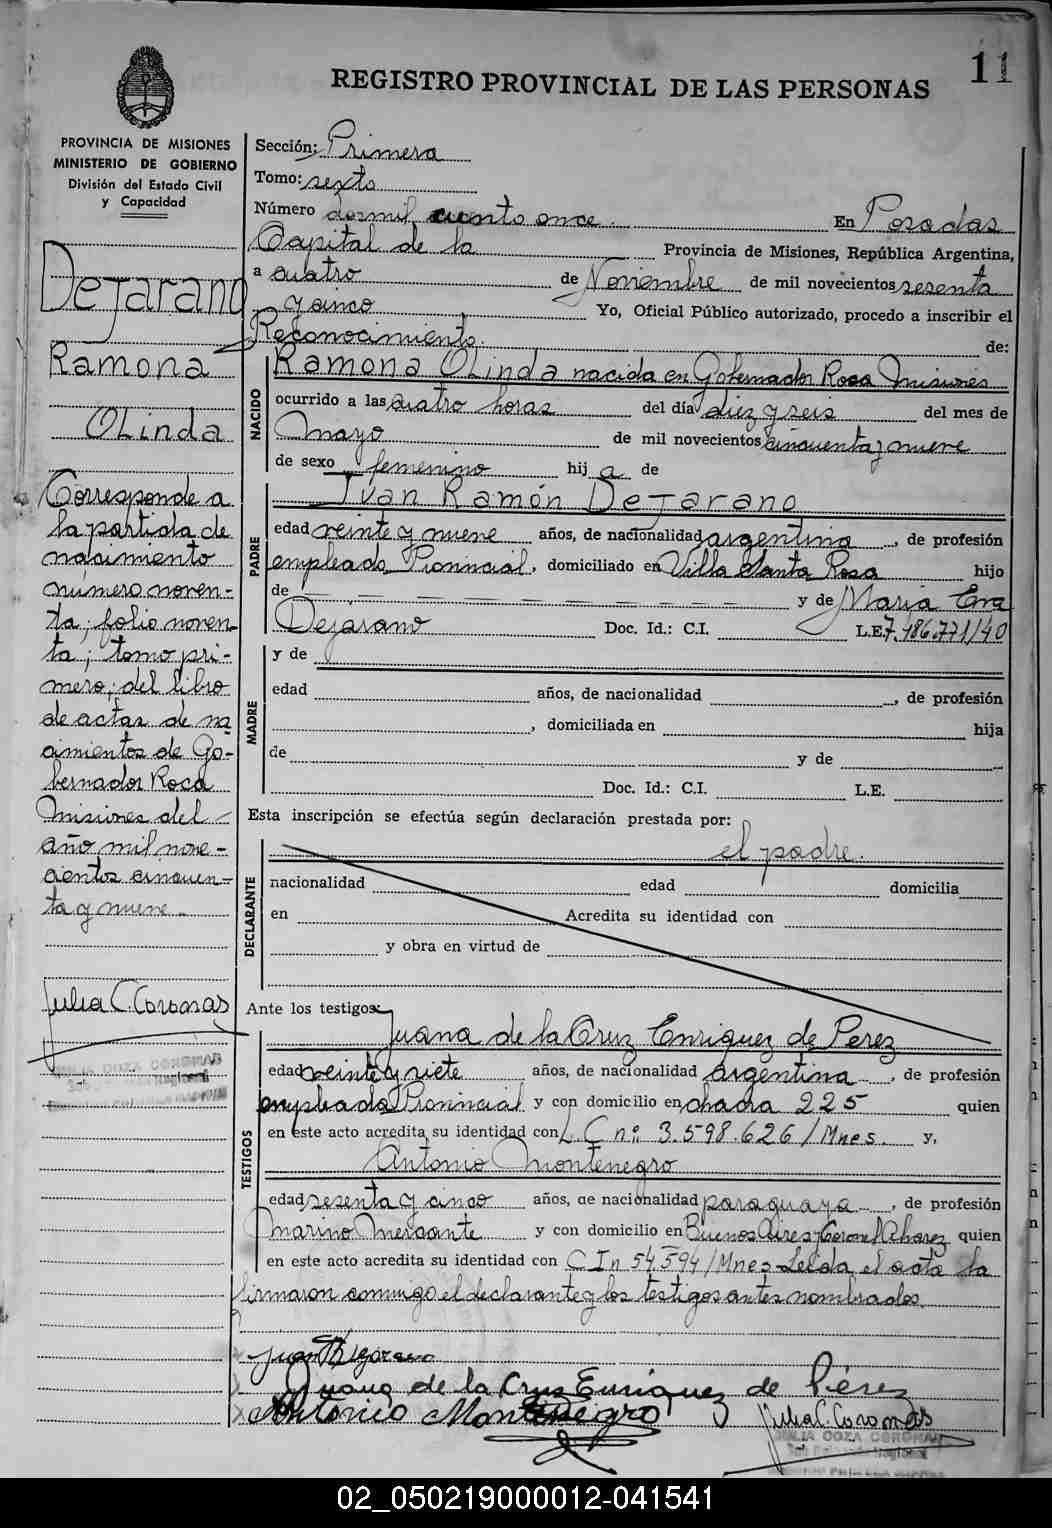 11
REGISTRO PROVINCIAL DE LAS PERSONAS
PROVINCIA DE MISIONES
MINISTERIO DE GOBIERNO
División del Estado Civil
y Capacidad
Dejarano
Ramona
Olinda
Corresponde a
la partida de
nacimiento
número noven-
ta; folio noven
ta; tomo pri-
mero; del libro
de actas de na
cimientos de Go-
bernador Roca
Misiones del
año mil nove-
cientos cincuen-
ta y nueve.
Julia C. Coronas
JULIA COZA CORONAS
Sección: Primera
Tomo: sexto
Número dosmil ciento once. En Posadas
Capital de la Provincia de Misiones, República Argentina,
a cuatro de Noviembre de mil novecientos sesenta
y cinco Yo, Oficial Público autorizado, procedo a inscribir el
Reconocimiento. de:
NACIDO
Ramona Olinda nacida en Gobernador Roca Misiones
ocurrido a las cuatro horas del día diez y seis del mes de
Mayo de mil novecientos cincuenta y nueve
de sexo femenino hij a de
PADRE
Juan Ramón Dejarano
edad veinte y nueve años, de nacionalidad argentina, de profesión
empleado Provincial, domiciliado en Villa Santa Rosa hijo
de — — — y de María Eva
Dejarano Doc. Id.: C.I. L.E. 7.486.771/40
MADRE
y de
edad años, de nacionalidad, de profesión
, domiciliada en hija
de y de
Doc. Id.: C.I. L.E.
Esta inscripción se efectúa según declaración prestada por:
el padre.
DECLARANTE
nacionalidad edad domicilia
en Acredita su identidad con
y obra en virtud de
Ante los testigos:
TESTIGOS
Juana de la Cruz Enriquez de Perez
edad veinte y siete años, de nacionalidad argentina, de profesión
empleada Provincial y con domicilio en chacra 225 quien
en este acto acredita su identidad con L.C nº 3.598.626/Mnes. y,
Antonio Montenegro
edad sesenta y cinco años, de nacionalidad paraguaya, de profesión
Marino Mercante y con domicilio en Buenos Aires y Coronel Alvarez quien
en este acto acredita su identidad con C I n 54.594/Mnes- Leída el acta la
firmaron conmigo el declarante y los testigos antes nombrados.
Juana de la Cruz Enriquez de Pérez
Antonico Montenegro
Julia C. Coronas
JULIA COZA CORONAS
02_050219000012-041541